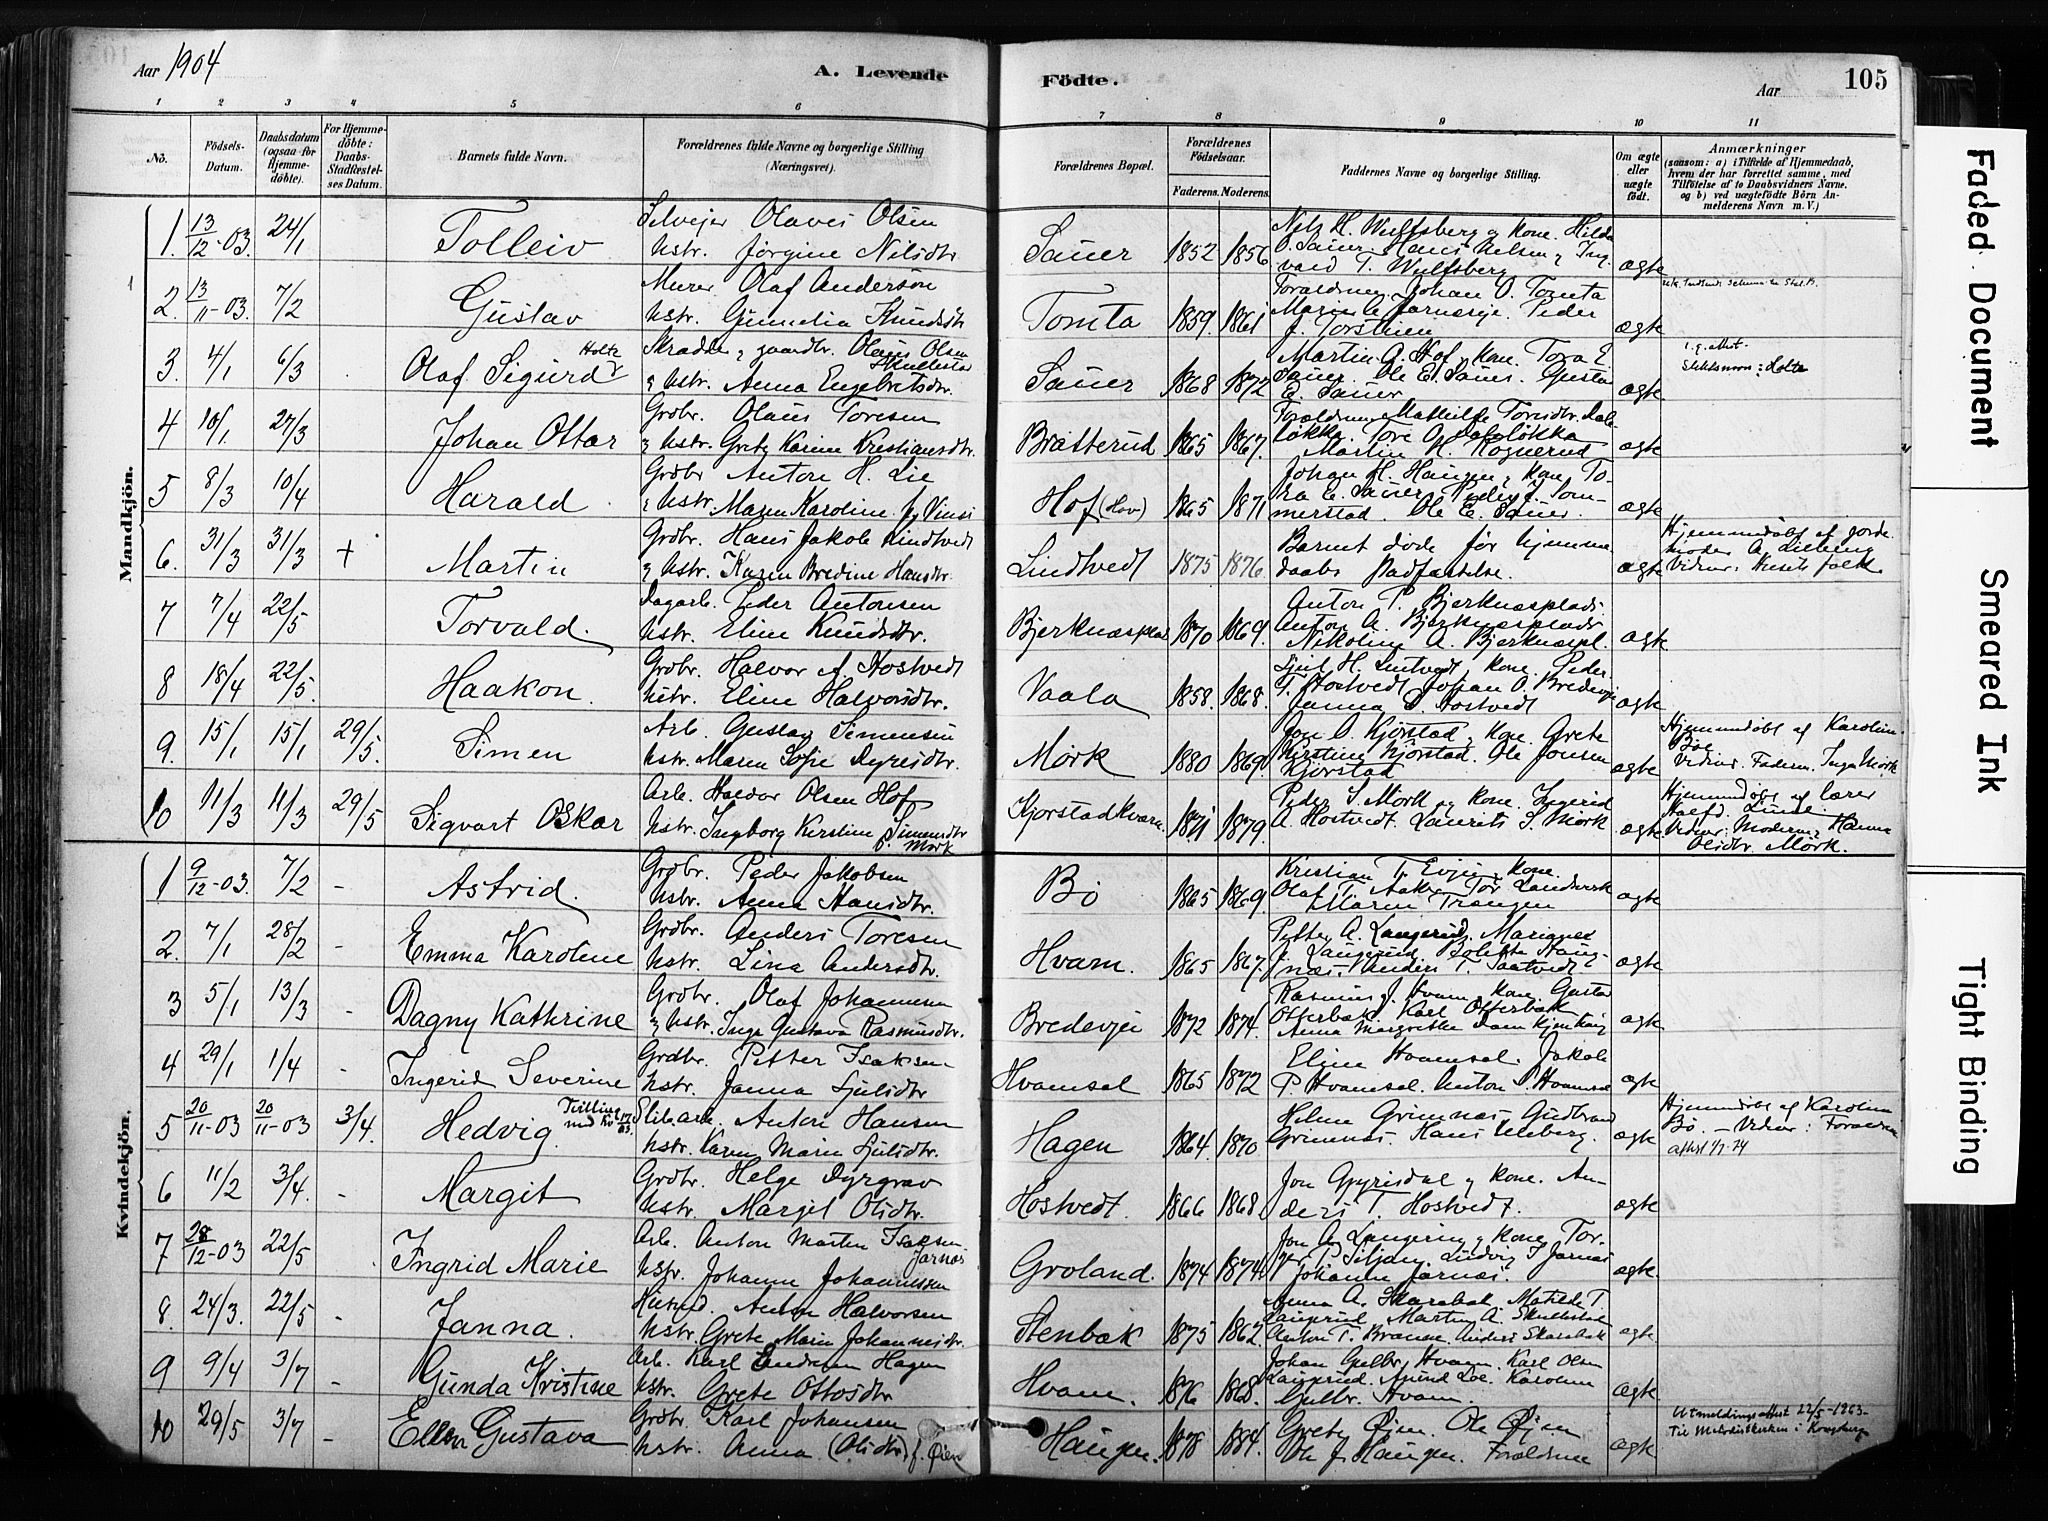 Aar 1904
A. Levende
Födte.
Aar
105
1 2 3 4 5 6 7 8 9 10 11
No.
Födsels-Datum.
Daabsdatum (ogsaa for Hjemme-döbte).
For Hjemme-döbte: Daabs-Stadfæstel-ses Datum.
Barnets fulde Navn.
Forældrenes fulde Navne og borgerlige Stilling (Næringsvei).
Forældrenes Bopæl.
Forældrenes Födselsaar.
Faderens. Moderens.
Faddernes Navne og borgerlige Stilling.
Om ægte eller uægte födt.
Anmærkninger
(saasom: a) i Tilfælde af Hjemmedaab,
hvem der har forrettet samme, med
Tilföielse af to Daabsvidners Navne,
og b) ved uægtefödte Börn An-
melderens Navn m. V.)
Mandkjön.
1. 13/12-03. 24/1 Tolleiv
Selvejer Olaves Olsen
hstr. Jørgine Nilsdtr.
Sauer 1852 1856
Nils H. Wulfsberg og kone. Hilda
O. Sauer. Hans Nelsen, Ing-
vald T. Wulfsberg
ægte
2. 13/11-03. 7/2 Gustav
Murer Olaf Anderson
hstr. Gunnelia Knudsdtr.
Tomta 1859. 1861
Forældrene, Johan O. Tomta
ægte
3. 4/1 6/3 Olaf Sigurd Holte
Skrædder, gaardbr. Olaus Olsen
Skullestad
hstr. Anna Engebretsdtr.
Sauer 1868 1872
Martin A. Hof, kone. Tora E.
Sauer. Ole E. Sauer. Gustav
E. Sauer
ægte
Slektsnavn: Holte
4 10/1. 27/3 Johan Ottar
Grdbr. Olaus Toresen
hstr. Grete Karine Kristiansdtr.
Bratterud 1865 1867.
løkka. Tore O. Dalsløkka
Martin H. Rognerud
ægte
5 8/3 10/4 Harald.
Grdbr Anton H. Lie
hstr. Maren Karoline
Hof (Hov) 1865 1871
Johan H. Haugen, kone To-
ra E. Sauer. Peder J. Som-
merstad. Ole E. Sauer.
ægte
6. 31/3 31/3 + Martin
Grdbr. Hans Jakob Lindtvedt
hstr. Karen Bredine Hansdtr.
Lindtvedt 1875 1876
Barnet døde før hjemme-
daabs stadfæstelse.
ægte
Hjemmedøbt af jorde-
moder A. Lieberg
Vidner: Husets folk.
7 7/4 22/5 Torvald.
Dagarb. Peder Antonsen
hstr. Eline Knudsdtr.
Bjerknæsplads 1870 1864.
Anton P. Bjerknæsplads.
Anton A. Bjerknæsplads
Nikoline A. Bjerknæspl.
ægte
8 18/4 22/5. Haakon.
Grdbr. Halvor A. Hostvedt
hstr. Eline Halvorsdtr.
Vaala 1858. 1868.
Hostvedt Johan O. Bredevje
Janna D. Hostvedt
ægte
9. 15/1 15/1 29/5. Simen
Arb. Gustav Simensen
hstr. Maren Sofie Dyresdtr.
Mørk 1880 1869.
Jon O. Kjørstad, kone. Grete
Kirstine Kjørstad. Ole Jonsen
Kjørstad
ægte
Hjemmedøbt af Karoline
Bøe
Vidner: Faderen. Inga Mørk
10 11/3 11/3 29/5 Sigvart Oskar
Arb. Haldor Olsen Hof
hstr. Ingborg Kirstine Simensdtr
f. Mørk
Kjorstadkvern 1871 1879.
Peder S. Mørk og kone. Ingerid
A. Hostvedt. Laurits S. Mørk
ægte
Hjemmedøbt af lærer
Halfd. Lunde.
Vidner: Moderen, Hanna
Olsdtr. Mørk.
Kvindekjön.
1 9/12-03. 7/2 - Astrid.
Grdbr. Peder Jakobsen
hstr. Anna Hansdtr.
Bö 1865 1869.
Kristian T. Evju, kone.
Olaf T. Aaker, Tor Landsverk
Maren Trangen
ægte
2. 7/1 28/2 - Emma Karoline
Grdbr. Anders Toresen
hstr. Lina Andersdtr.
Hvam. 1865 1867.
Petter A. Langerud, Marianes
J. Langerud, Bolette Haug-
næs. Anders T. Saatvedt
ægte
3 5/1 13/3 - Dagny Kathrine
Grdbr. Olaf Johannesen
hstr. Inga Gustava Rasmusdtr.
Bredevjei 1872 1874.
Rasmus J. Hvam, kone Gustav
Otterbæk Karl Otterbæk
ægte
4 29/1 1/4 - Ingerid Severine
Grdbr. Petter Isaksen
hstr. Janna Sjulsdtr
Hvamsal 1865 1872
Eline Hvamsal. Jakob
P. Hvamsal. Anton P. Hvamsal
ægte
5 20/11-03 20/11-03 3/4. Hedvig.
Anton Hansen
hstr. Karen Marie Sjulsdtr.
Hagen 1864. 1870
Helene Grimnæs Gudbrand
Grimnæs, Hans Uleberg.
ægte
Hjemmedøbt af Karoline
Bø. - Vidner: Forældrene
6 11/2 3/4. - Margit
Grdbr. Helge Dyrgrav
hstr. Margit Olsdtr.
Hostvedt. 1866 1868.
kone. An-
ders T. Hostvedt.
ægte
7 28/12-03 22/5 . Ingrid Marie
Arb. Anton Martin Isaksen
Jarnæs
hstr. Johanne Johannessen
Groland. 1874 1874.
Jon A. Langerud, kone Tor-
ger P. Siljan, Ludvig I. Jarnæs
Johanne Jarnæs.
ægte.
8. 24/3. 22/5 - Janna.
Anton Halvorsen
hstr. Grete Marie Johannesdtr.
Stenbæk 1875 1862.
Anna A. Skarabak. Matilde T.
Langerud. Martin A. Skullestad
ægte
9 9/4 3/7 - Gunda Kristine
Arb. Karl Hagen
hstr. Grete Ottosdtr
Hvam. 1876 1868.
Johan Gulbr. Hvam. Karl Olsen
Langerud. Amund Loe. Karoline
Gulbr. Hvam.
ægte
10 29/5 3/7 - Ellen Gustava
Grdbr. Karl Johansen
hstr. Anna (Olsdtr.) f. Øien
Haugen. 1878 1884.
Grete Øjen. Ole Øjen
Ole J. Haugen. Forældrene
ægte
Utmeldingsattest 22/5-1963-
Til Metodistkirken i Kongsberg
Faded Document
Smeared Ink
Tight Binding